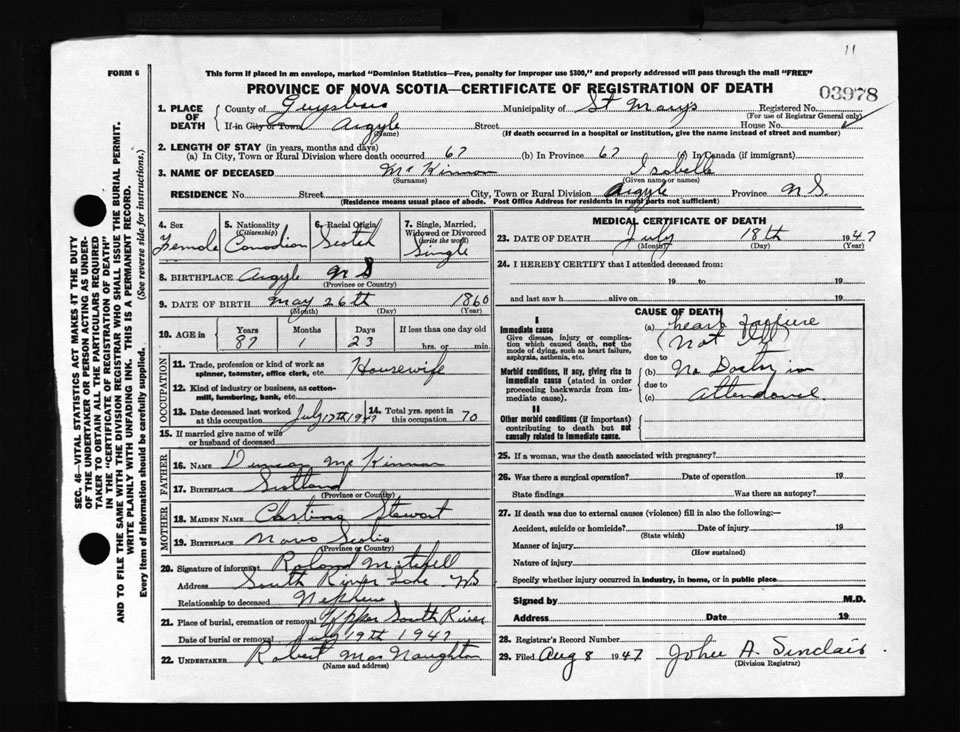 11
FORM 6
This form if placed in an envelope, marked "Dominion Statistics—Free, penalty for improper use $300," and properly addressed will pass through the mail "FREE"
PROVINCE OF NOVA SCOTIA—CERTIFICATE OF REGISTRATION OF DEATH
03978
1. PLACE OF DEATH { County of Guysboro Municipality of St Marys Registered No.
(For use of Registrar General only)
If in City or Town Argyle Street House No.
(Name) (If death occurred in a hospital or institution, give the name instead of street and number)
2. LENGTH OF STAY (in years, months and days)
(a) In City, Town or Rural Division where death occurred 67 (b) In Province 67 (c) In Canada (if immigrant)
3. NAME OF DECEASED McKinnon Isobelle
(Surname) (Given name or names)
RESIDENCE No. Street City, Town or Rural Division Argyle Province N.S.
(Residence means usual place of abode. Post Office Address for residents in rural parts not sufficient)
4. Sex Female
5. Nationality (Citizenship) Canadian
6. Racial Origin Scotch
7. Single, Married, Widowed or Divorced (write the word) Single
8. BIRTHPLACE Argyle N S
(Province or Country)
9. DATE OF BIRTH May 26th 1860
(Month) (Day) (Year)
10. AGE in Years 87 Months 1 Days 23 If less than one day old hrs. or min.
OCCUPATION
11. Trade, profession or kind of work as spinner, teamster, office clerk, etc. Housewife
12. Kind of industry or business, as cotton-mill, lumbering, bank, etc.
13. Date deceased last worked at this occupation July 17th 1947
14. Total yrs. spent in this occupation 70
15. If married give name of wife or husband of deceased
FATHER
16. NAME Duncan McKinnon
17. BIRTHPLACE Scotland
(Province or Country)
MOTHER
18. MAIDEN NAME Stewart
19. BIRTHPLACE Nova Scotia
(Province or Country)
20. Signature of informant Roland Mitchell
Address South River Lake NS
Relationship to deceased Nephew
21. Place of burial, cremation or removal Upper South River
Date of burial or removal July 19th 1947
22. UNDERTAKER Robert MacNaughton
(Name and address)
MEDICAL CERTIFICATE OF DEATH
23. DATE OF DEATH July 18th 1947
(Month) (Day) (Year)
24. I HEREBY CERTIFY that I attended deceased from:
19 to 19
and last saw h alive on 19
CAUSE OF DEATH
I
Immediate cause
Give disease, injury or complication which caused death, not the mode of dying, such as heart failure, asphyxia, asthenia, etc.
(a) heart failure
(Not Ill)
due to
Morbid conditions, if any, giving rise to immediate cause (stated in order proceeding backwards from immediate cause).
(b) No Doctor in
due to
(c) attendance
II
Other morbid conditions (if important) contributing to death but not causally related to immediate cause.
25. If a woman, was the death associated with pregnancy?
26. Was there a surgical operation? Date of operation 19
State findings Was there an autopsy?
27. If death was due to external causes (violence) fill in also the following:—
Accident, suicide or homicide? Date of injury 19
(State which)
Manner of injury
(How sustained)
Nature of injury
Specify whether injury occurred in industry, in home, or in public place
Signed by M.D.
Address Date 19
28. Registrar's Record Number
29. Filed Aug 8 1947 John A. Sinclair
(Division Registrar)
SEC. 46—VITAL STATISTICS ACT MAKES IT THE DUTY
OF THE UNDERTAKER OR PERSON ACTING AS UNDERTAKER TO OBTAIN ALL THE PARTICULARS REQUIRED
IN THE "CERTIFICATE OF REGISTRATION OF DEATH"
AND TO FILE THE SAME WITH THE DIVISION REGISTRAR WHO SHALL ISSUE THE BURIAL PERMIT.
WRITE PLAINLY WITH UNFADING INK. THIS IS A PERMANENT RECORD.
Every item of information should be carefully supplied. (See reverse side for instructions.)